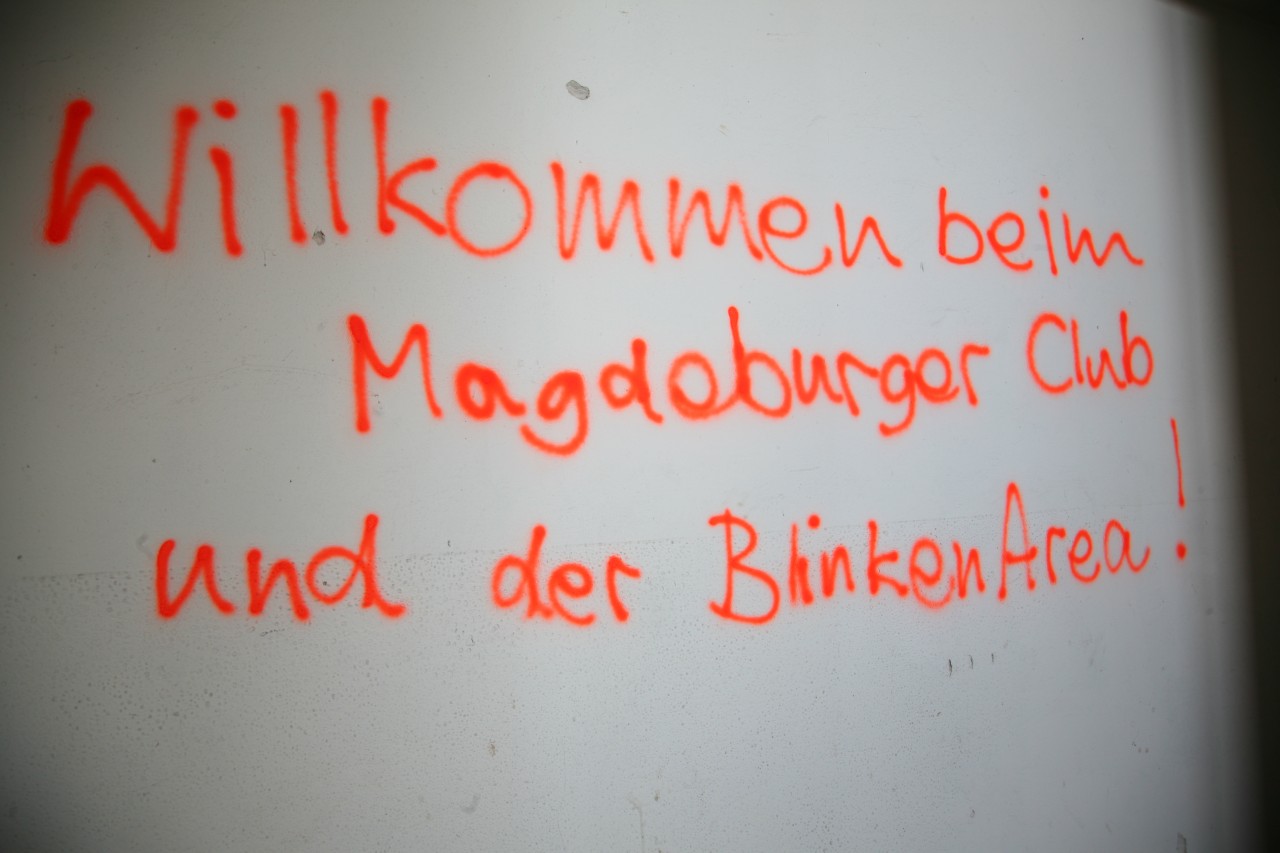 Willkommen beim
Magdeburger Club
und der BlinkenArea!